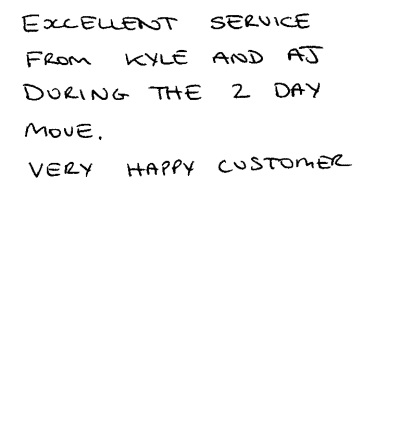 EXCELLENT SERVICE
FROM KYLE AND AJ
DURING THE 2 DAY
MOVE.
VERY HAPPY CUSTOMER